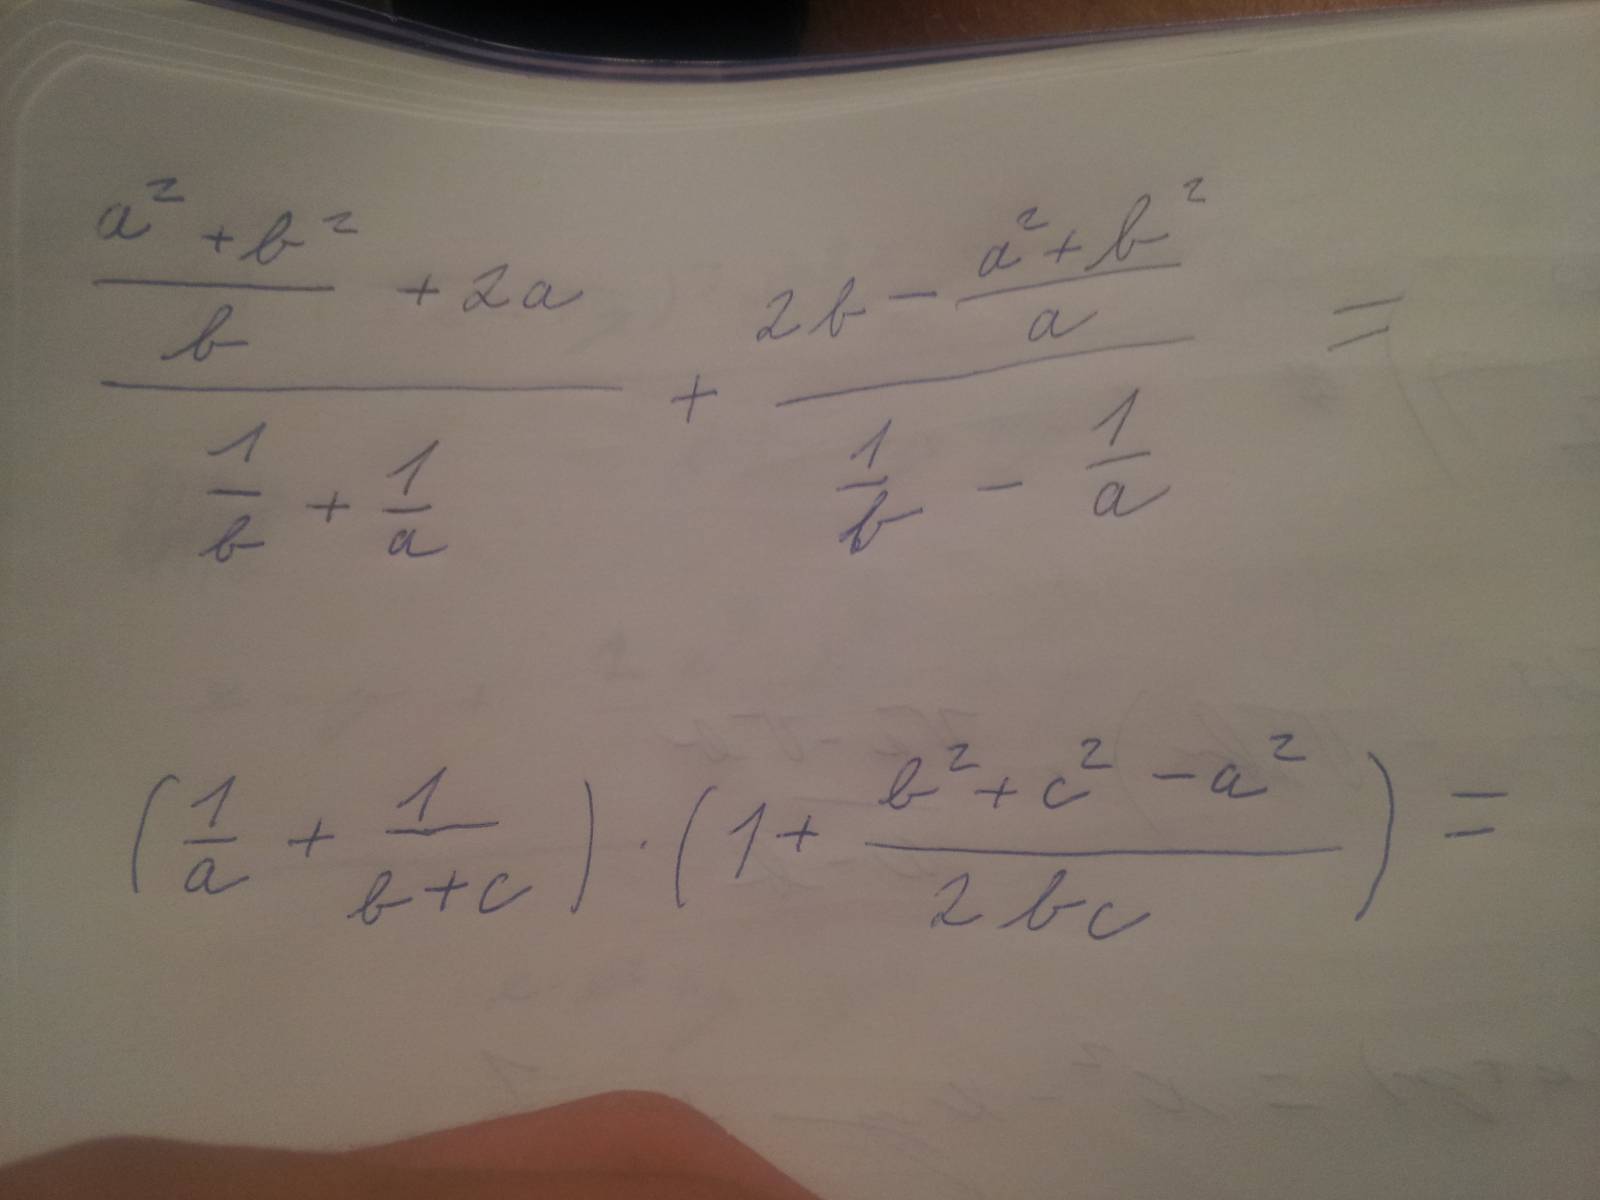 (((a² + b²)/b) + 2a)/((1/b) + (1/a)) + (2b − ((a² + b²)/a))/((1/b) − (1/a)) =
((1/a) + (1/(b+c))) · (1 + ((b² + c² − a²)/(2bc))) =